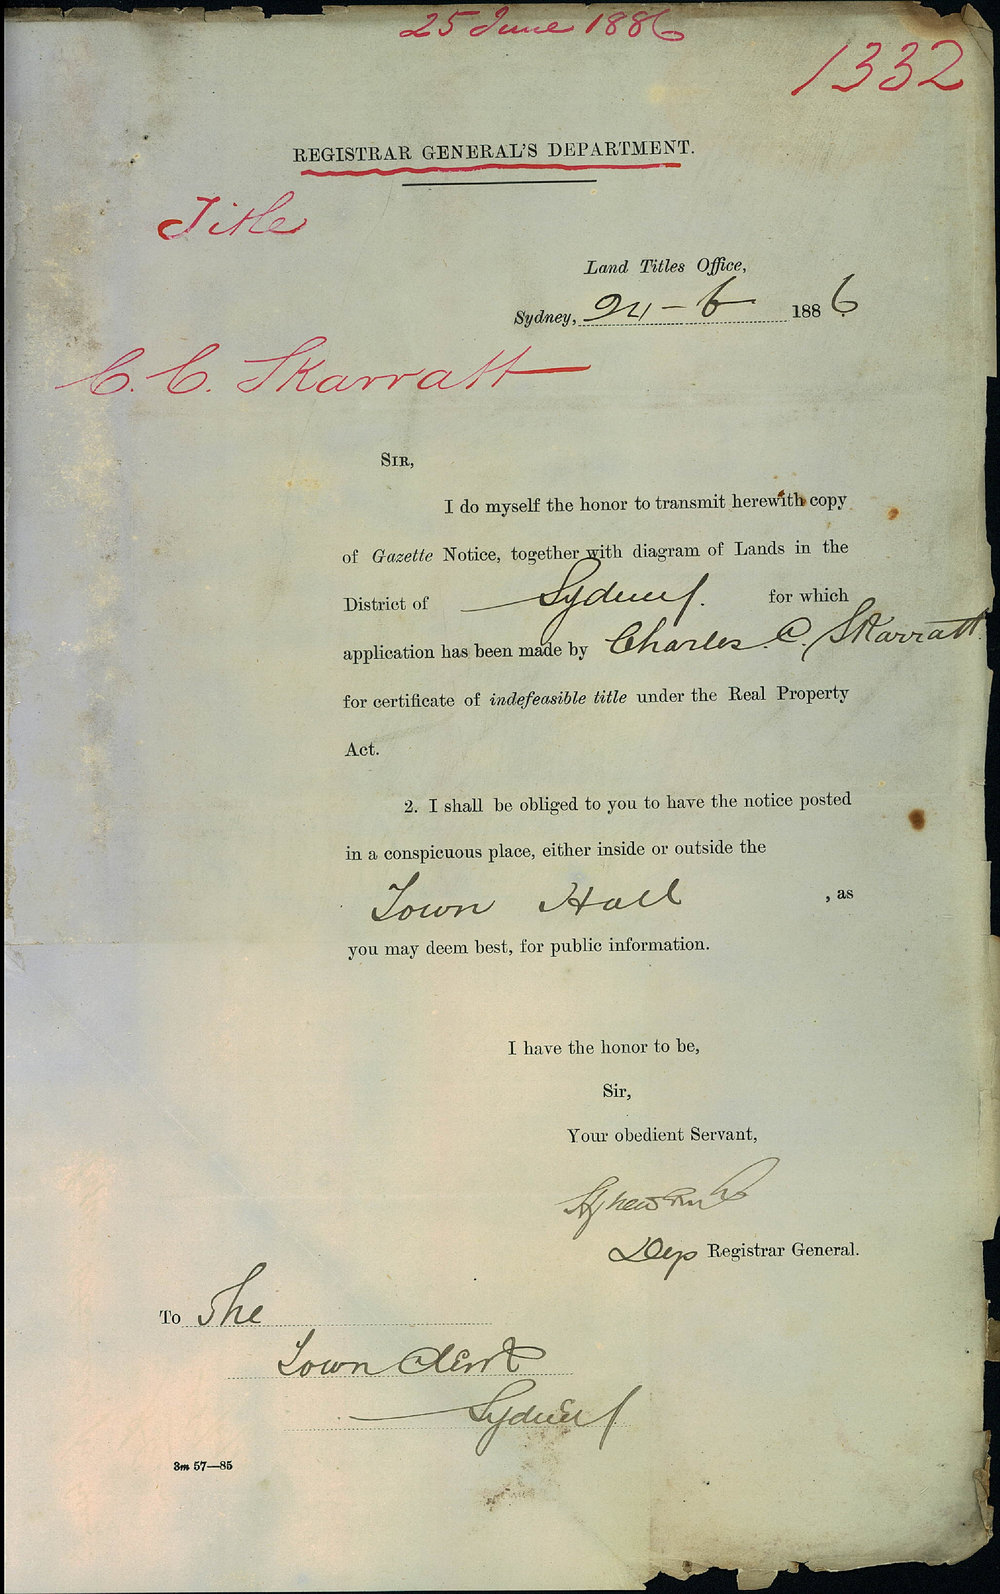 25 June 1886
1332
REGISTRAR GENERAL'S DEPARTMENT.
Title
Land Titles Office,
Sydney, 24 - 6 1886
C. C. Skarratt
SIR,
I do myself the honor to transmit herewith copy
of Gazette Notice, together with diagram of Lands in the
District of Sydney. for which
application has been made by Charles. C. Skarratt.
for certificate of indefeasible title under the Real Property
Act.
2. I shall be obliged to you to have the notice posted
in a conspicuous place, either inside or outside the
Town Hall , as
you may deem best, for public information.
I have the honor to be,
Sir,
Your obedient Servant,
Dep Registrar General.
To The
Town Clerk
Sydney
3m 57—85